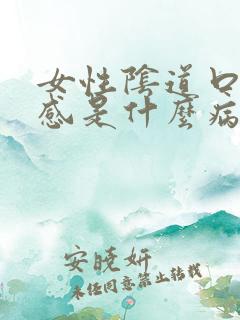 女性陰道口
感是什麼病
安曉妍
未經同意禁止轉載